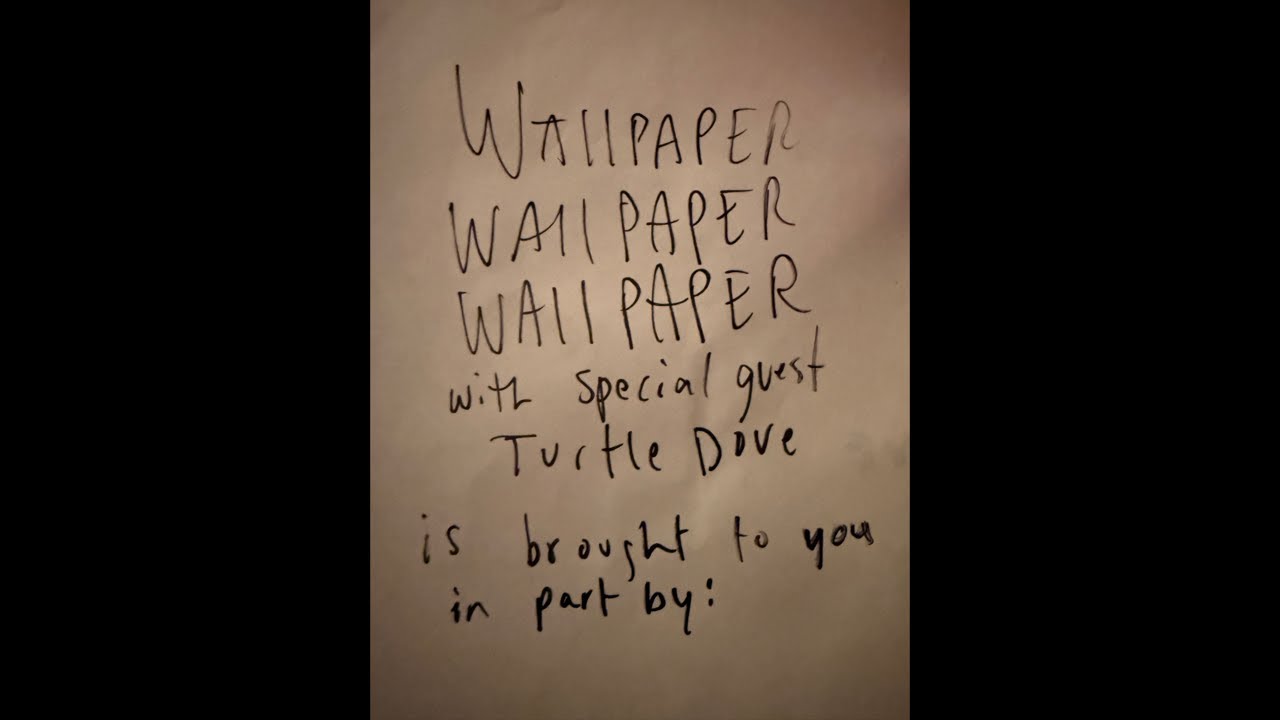 WAllPAPER
WAllPAPER
WAllPAPER
with special guest
Turtle Dove
is brought to you
in part by: